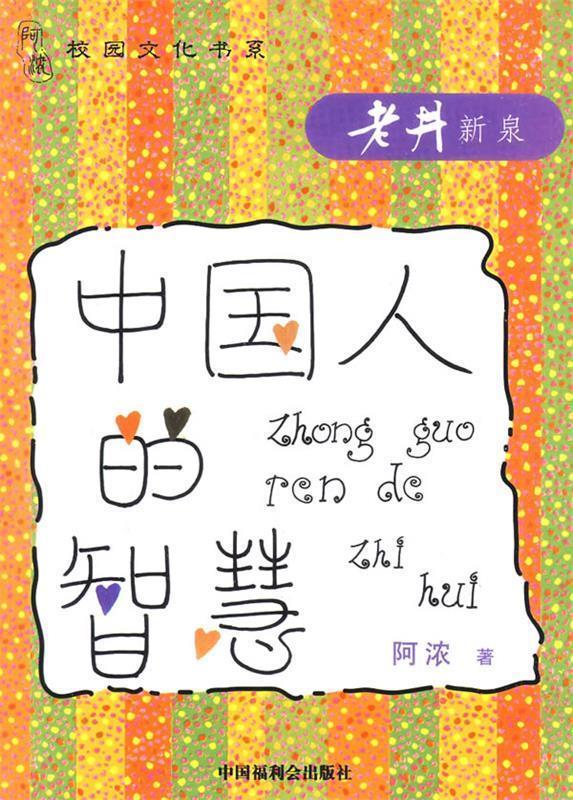 阿浓
校园文化书系
老井新泉
中国人
的
zhong guo
ren de
智慧
zhi
hui
阿浓 著
中国福利会出版社